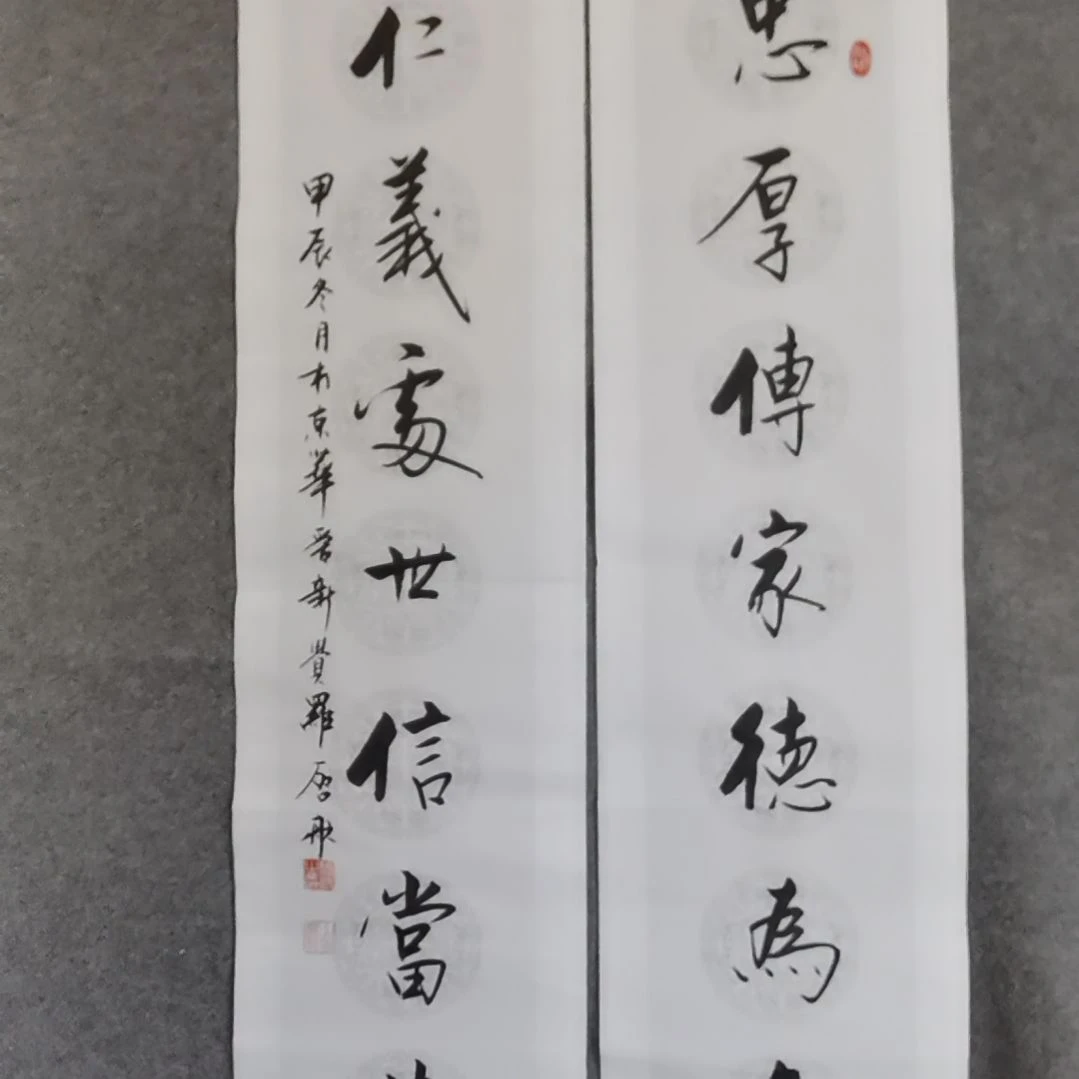 忠厚傳家德為
仁義處世信當
甲辰冬月於京華愛新覺羅啓